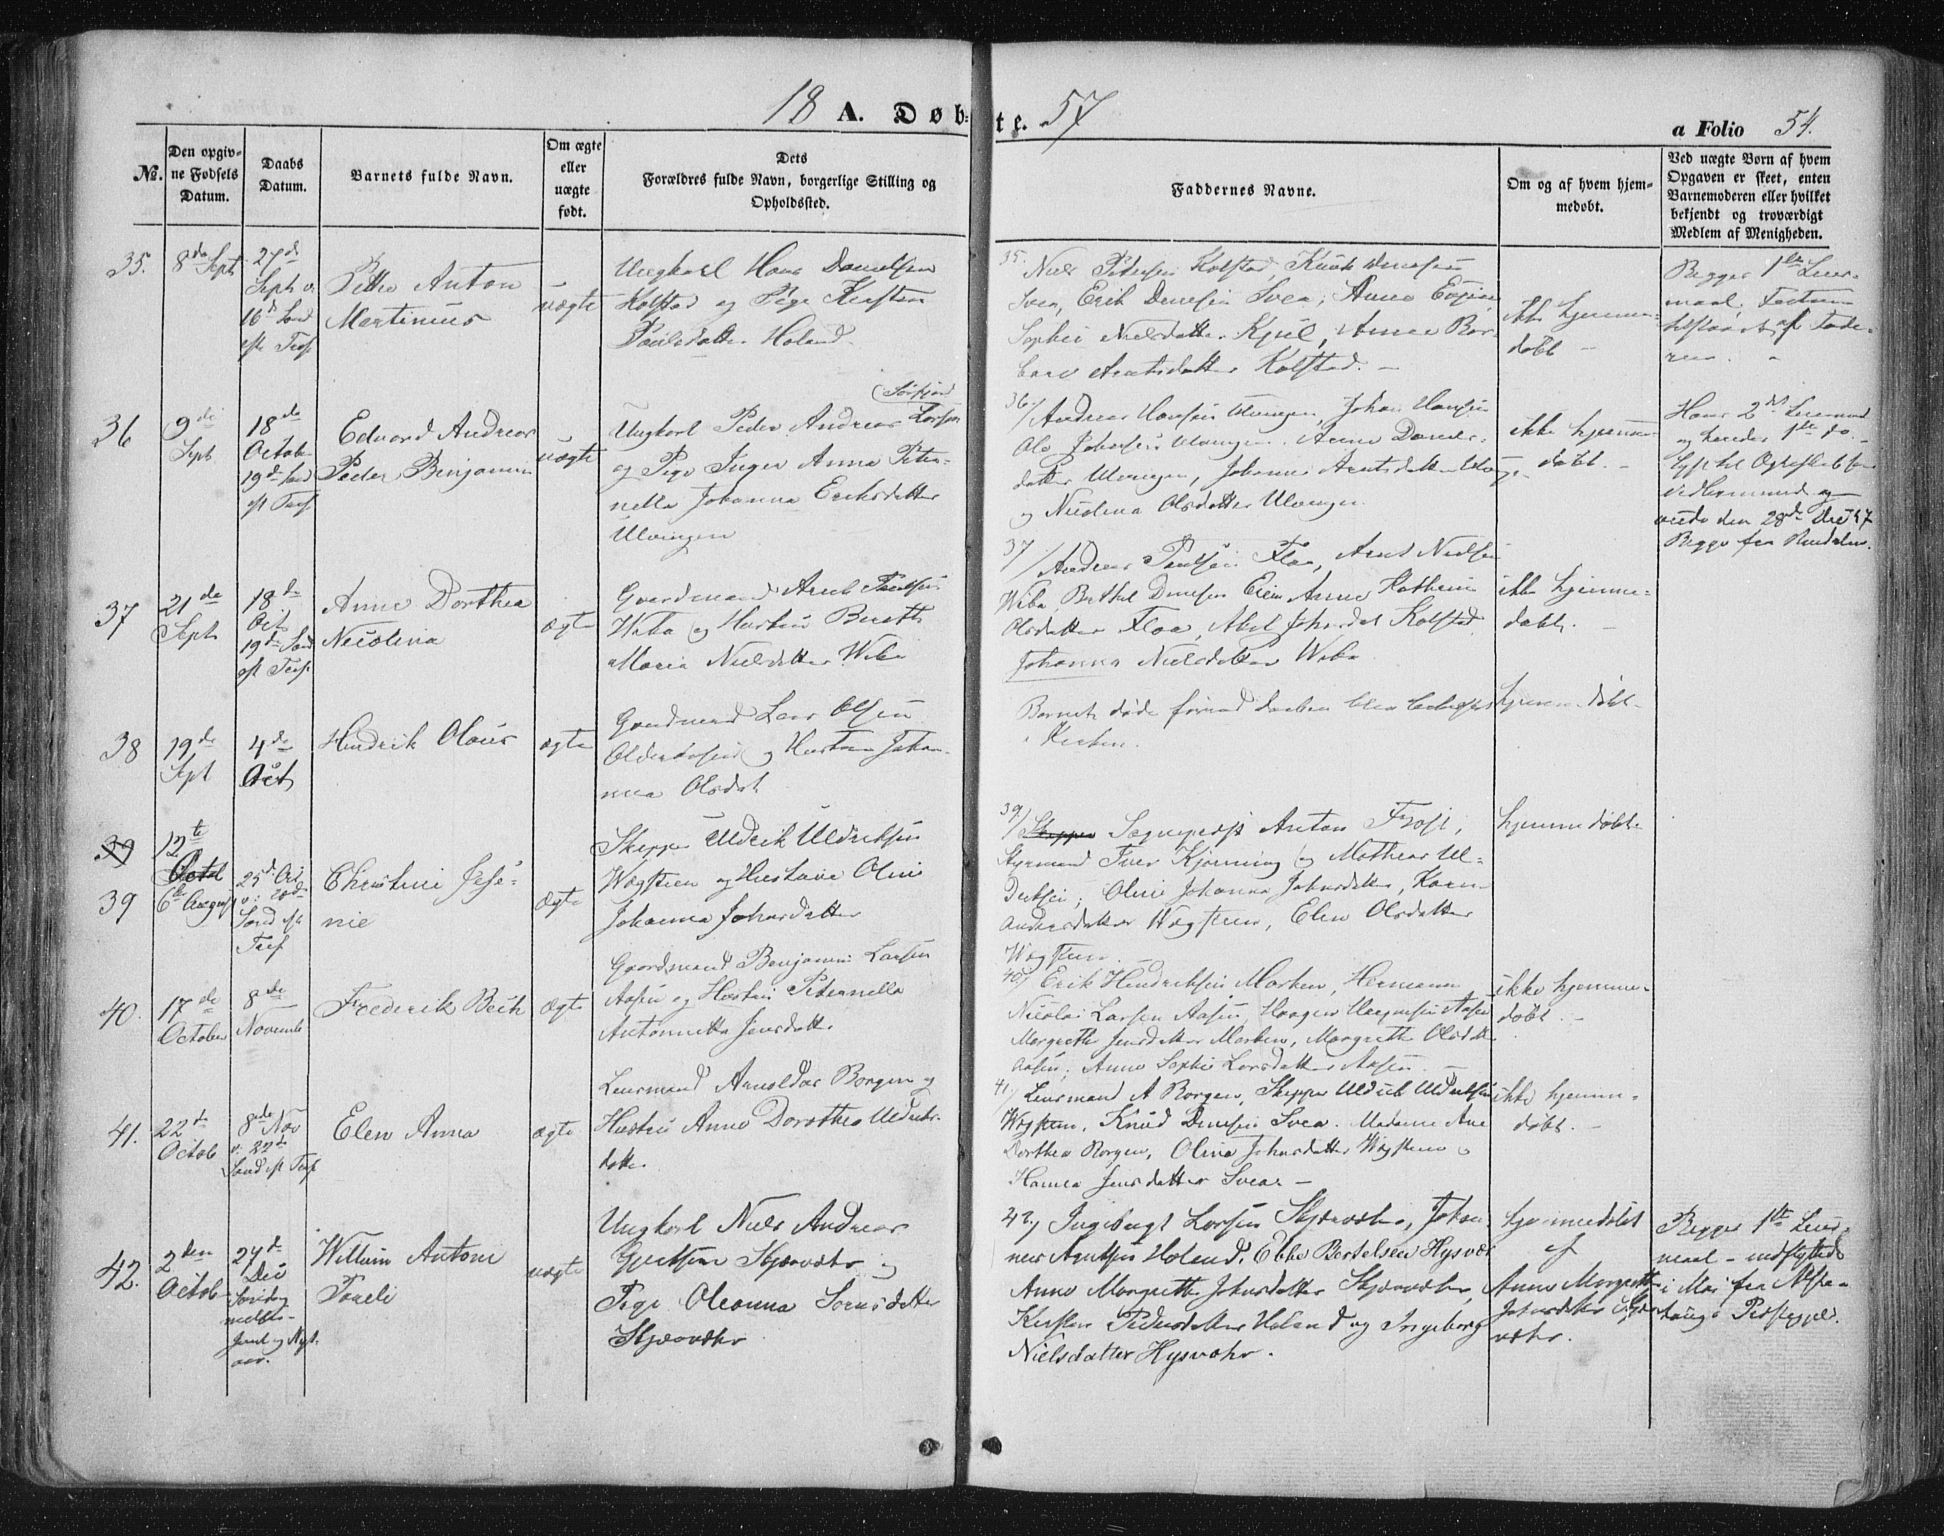 18 A. Døb-
te. 57
a Folio 54.
No.
Den opgiv-
ne Fødsels
Datum.
Daabs
Datum.
Barnets fulde Navn.
Om ægte
eller
uægte
født.
Dets
Forældres fulde Navn, borgerlige Stilling og
Opholdssted.
Faddernes Navne.
Om og af hvem hjem-
medøbt.
Ved uægte Born af hvem
Opgaven er skeet, enten
Barnemoderen eller hvilket
bekjendt og troværdigt
Medlem af Menigheden.
35.
8de Sept
27de
Sept v.
16d Sønd
eft Tref
Anton
Martinius
uægte
Ungkarl Hans Danielsen
Kolstad og Pige Kirsten
Paulsdatter Holand
35.
Niels Pedersen Kolstad, Knud Denesen
Svea, Erik Denesen Svea, Anne
Sophie Nielsdatter, Anne Bar-
bara Arntsdatter Kolstad. —
ikke hjemme-
døbt —
Begges 1ste Leier-
maal.
tilstaaet af Fade-
ren. —
36
9de
Sept
18de
October
19de Sønd
eft Tref
Edvard Andreas
Peder Benjamin
uægte
Ungkarl Peder Andreas Larsen
og Pige Inger Anna Peter-
nella Johanna Eriksdatter
Ulvingen
36/
Andreas Hansen Ulvingen, Johan Hansen
Ole Johnsen Ulvingen, Anne Daniels-
datter Ulvingen, Johanna Arntsdatter
og Nicolina Olsdatter Ulvingen
ikke hjemme-
døbt. —
Hans 2det Leiermaal
og hendes 1ste do. —
den 28de
Begge fra
37
21de
Sept
18de
Oct
19de Sønd
eft Tref
Anne Dorthea
Nicolina
ægte
Gaardmand Arnt Paulsen
Wiba og Hustru Bereth
Maria Nielsdatter Wiba
37/
Andreas Paulsen Floa, Arnt Nielsen
Wiba, Berthel Denesen Anne Kathrine
Olsdatter Floa, Abel Johnsdat Kolstad
Johanna Nielsdatter Wiba
ikke hjemme-
døbt. —
38
19de
Sept
4de
Oct
Hendrik Olaus
ægte
Gaardmand Lars Olsen
og Hustru Johan-
na Olsdat
Barnet døde førend daaben blev
i Kirken.
hjemmedøbt
39
12te
Octob
39
6te August
25d Oct
v. 20de
Sønd eft
Tref
Christine Jose-
nie
ægte
Skipper Uldrik Uldriksen
Wægsteen og Hustrue Oline
Johanna Johnsdatter
39/
Skipper Sogneprest Anton Frost,
Styrmand Iver Kjørning og Mathias Ul-
driksen; Oline Johanna Johnsdatter, Karen
Andersdatter Wægsteen, Elen Olsdatter
Wægsteen.
hjemmedøbt
40.
17de
October
8de
Novemb
Frederik Bech
ægte
Gaardmand Benjamin Larsen
Aasen og Hustru Peternella
Antonnetta Jensdatter
40/ Erik Hendriksen Marken, Hermann
Nicolai Larsen Aasen, Haagen Haagensen Aasen
Margrethe Jensdatter Marken, Margrethe Olsdat
Aasen, Anne Sophie Larsdatter Aasen —
ikke hjemme-
døbt. —
41.
22de
Octob
8de Nov
v. 22de
Sønd eft Tref
Elen Anna
ægte
Lensmand Arnoldus Borgen og
Hustru Anne Dorothea Uldriks-
datter
41/ Lensmand A Borgen, Skipper Uldrik Uldriksen
Wægsteen, Knud Denesen Svea. Madame Ane
Dorthea Borgen, Olina Johnsdatter Wægsteen og
Hanna Jensdatter Sveas —
ikke hjemme-
døbt. —
42.
2den
Octob
27de
Dec
Søndag
mellem
Juul og Nyt-
aar.
Willum Antoni
uægte
Ungkarl Niels Andreas
Gjertsen Skjærvær og
Pige Oleanna Sørensdatter
Skjærvær
42/ Ingebrigt Larsen Skjærvær, Johan-
nes Arntsen Holand, Ebbe Bertelsen Hysvær
Anne Margrethe Johnsdatter Skjærvær,
Kirsten Pedersdatter Holand og Ingeborg
Nielsdatter Hysvær.
hjemmedøbt
af
Anne Margrethe
Johnsdatter Skjær-
vær.
Begges 1ste Leier-
maal — indflyttede
i Mai fra Alsta-
haugs Præstegjeld.